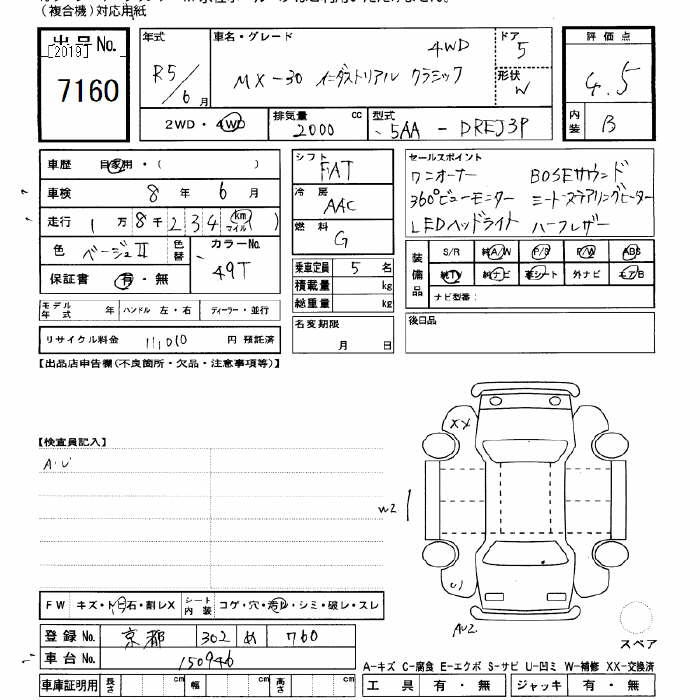 (複合機)対応用紙
出品No.
[2019]
7160
年式
R5/6月
車名・グレード
4WD
MX-30 インダストリアル クラシック
ドア
5
形状
W
2WD・4WD
排気量
2000 cc
型式
5AA - DREJ3P
評価点
4.5
内装
B
車歴 自家用・( )
車検 8年 6月
走行 1万8千234 km マイル( )
色 ベージュII
色替
カラーNo.
49T
保証書 有・無
モデル年式 年 ハンドル 左・右 ディーラー・並行
リサイクル料金 11,010 円 預託済
シフト
FAT
冷房
AAC
燃料
G
乗車定員 5名
積載量 kg
総重量 kg
名変期限
月 日
セールスポイント
ワンオーナー BOSEサウンド
360°ビューモニター ステアリングヒーター
LEDヘッドライト ハーフレザー
装備品
S/R 純A/W P/S P/W ABS
純TV 純ナビ 革シート 外ナビ エアB
ナビ型番:
後日品
【出品店申告欄(不良箇所・欠品・注意事項等)】
【検査員記入】
A・U
XX
W2
U1
AU2
スペア
FW キズ・ト石・割レX シート内装 コゲ・穴・汚レ・シミ・破レ・スレ
登録No. 京都 302 め 760
車台No. 150946
車庫証明用 長さ cm 幅 cm 高さ cm
A-キズ C-腐食 E-エクボ S-サビ U-凹ミ W-補修 XX-交換済
工具 有・無 ジャッキ 有・無